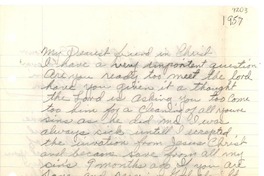 4203
1957
My Dearest Friend in Christ
I have a very important question
Are you ready too meet the lord
have you given it a thought
the Lord is asking you too come
too him for a cleaning of all youre
sins as he did me I was
always sick untill I accepted
the invation from Jesus Christ
and became save from all my
sins 9 months ago if you are